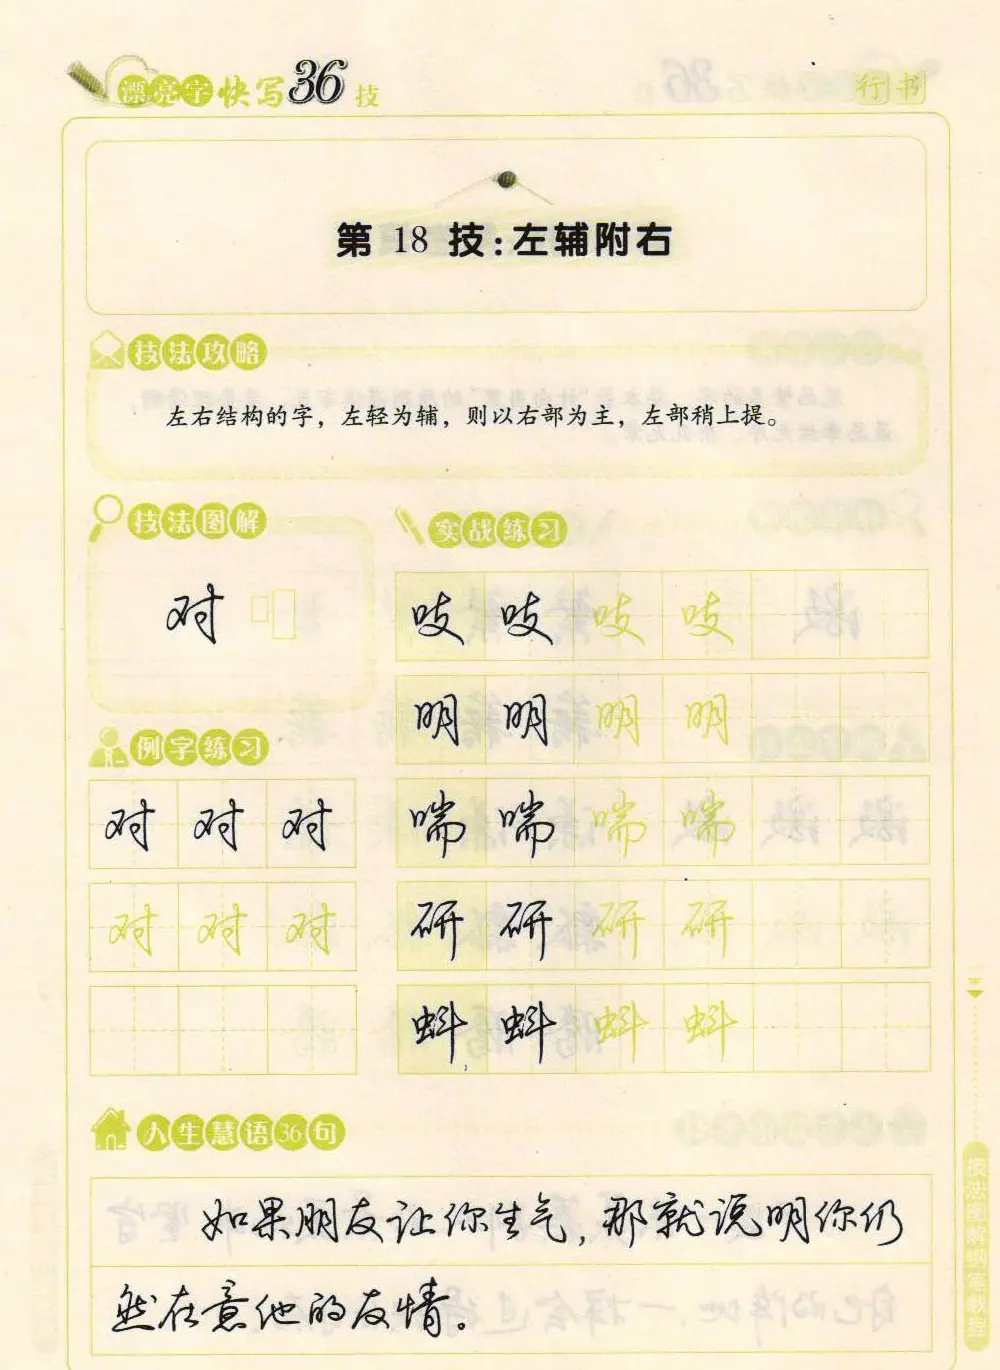 漂亮字快写36技
行书
第 18 技:左辅附右
技法攻略
左右结构的字，左轻为辅，则以右部为主，左部稍上提。
技法图解
对
实战练习
吱 吱 吱 吱
明 明 明 明
喘 喘 喘 喘
研 研 研 研
蚪 蚪 蚪 蚪
例字练习
对 对 对
对 对 对
人生慧语36句
如果朋友让你生气，那就说明你仍
然在意他的友情。
技法图解钢笔教程